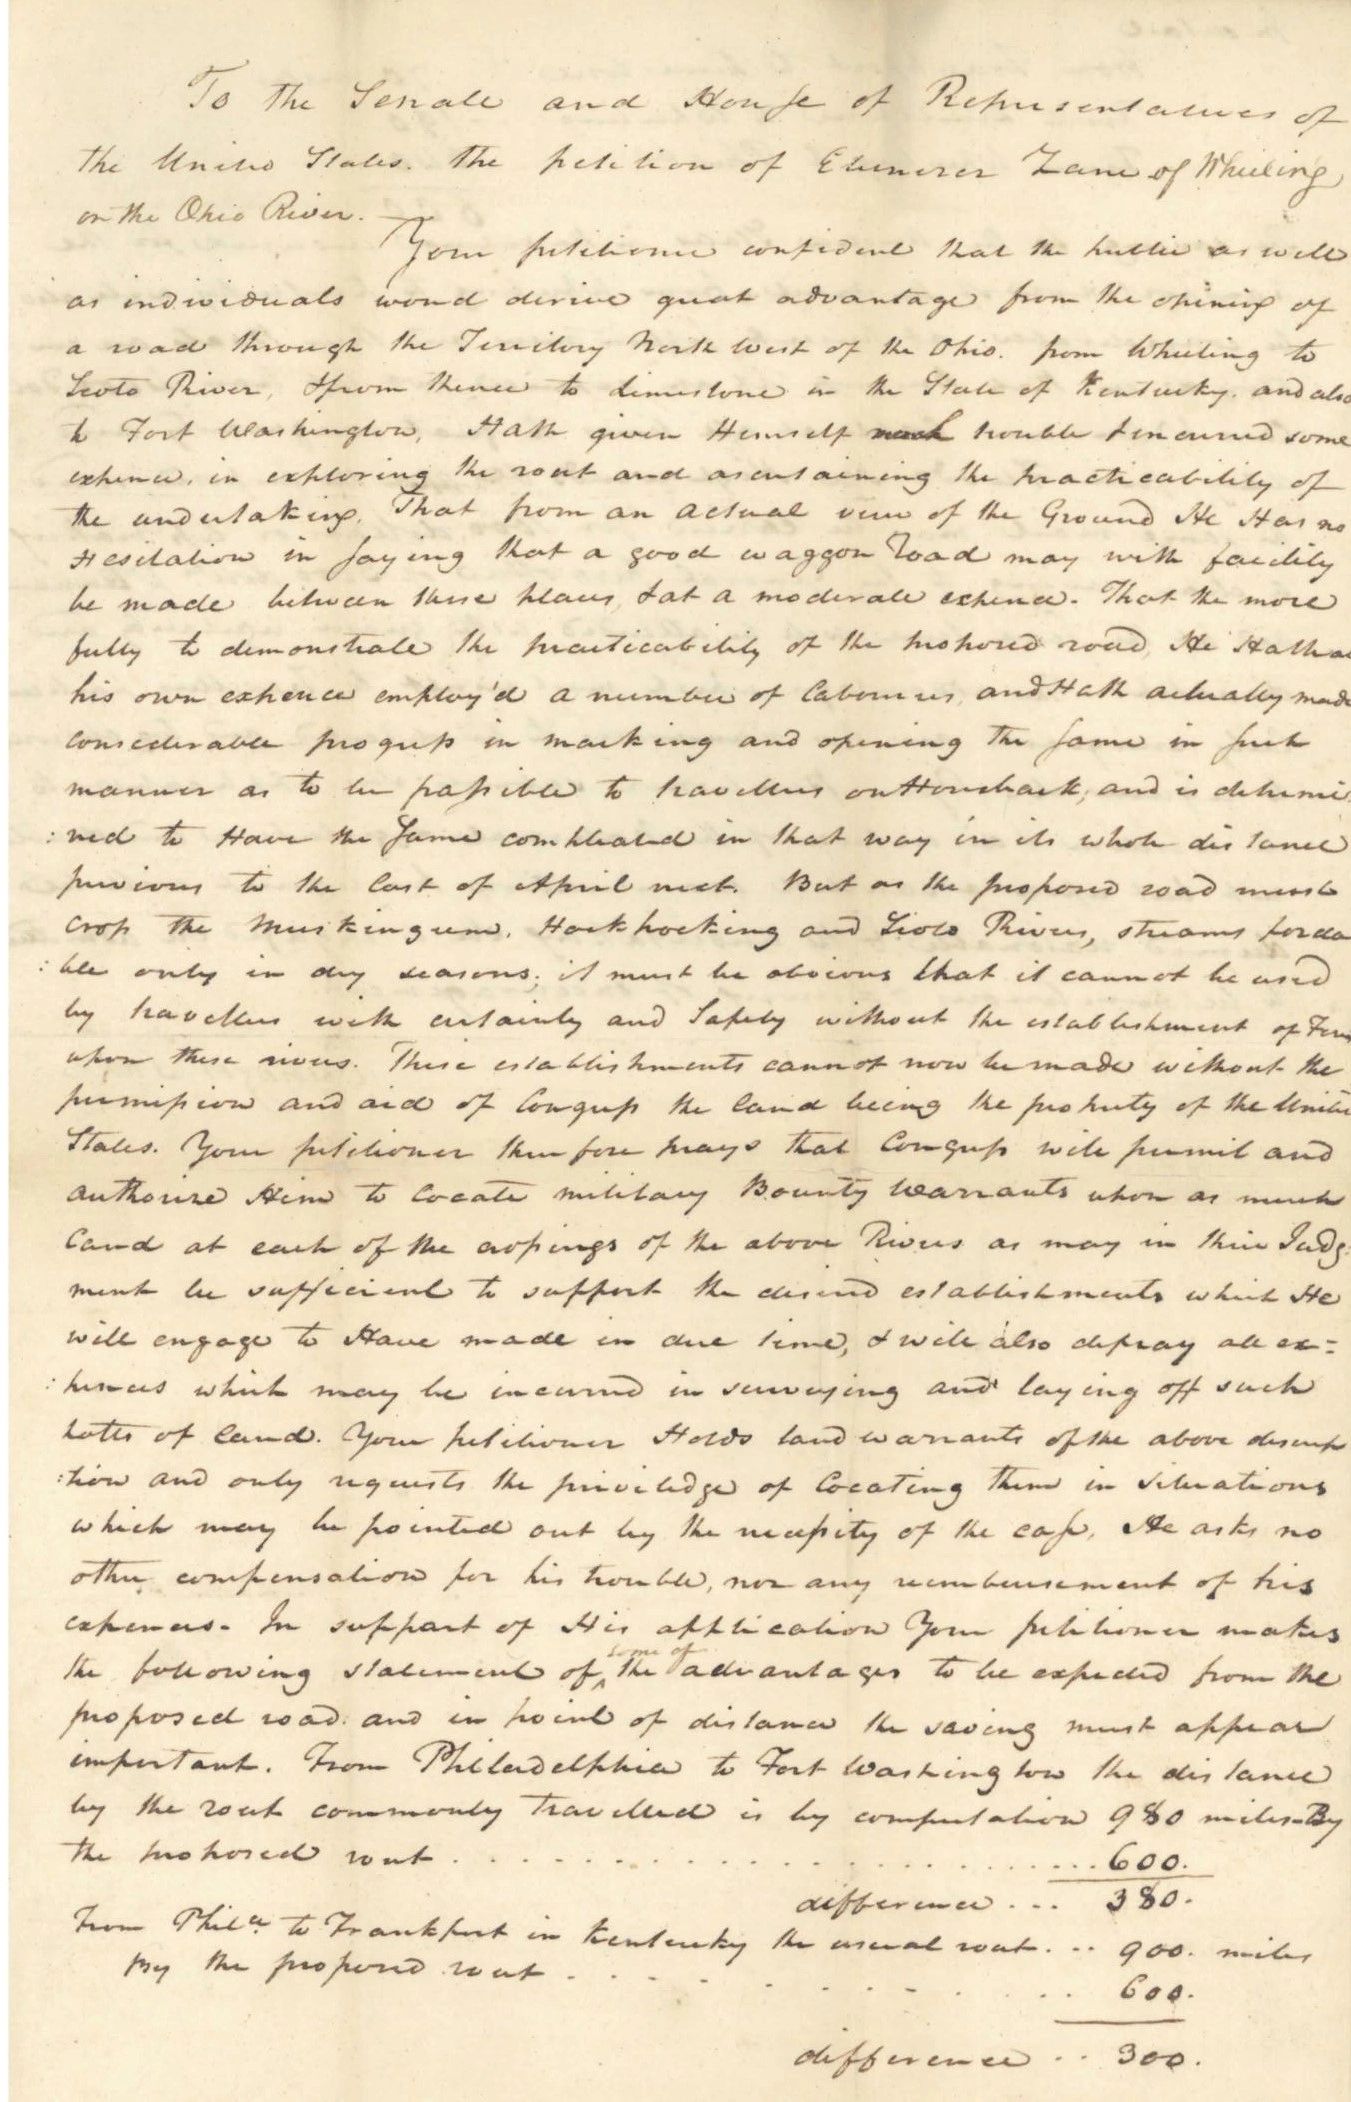 To the Senate and House of Representatives of
the United States. The petition of Ebenezer Zane of Wheeling
on the Ohio River.
Your petitioner confident that the public as well
as individuals woud derive great advantage from the opening of
a road through the Territory North West of the Ohio. from Wheeling to
Scoto River, & from thence to Limestone in the State of Kentucky. and also
to Fort Washington, Hath given Himself much trouble & incurred some
expence. in exploring the rout and ascertaining the practicability of
the undertaking. That from an actual view of the Ground He Has no
Hesitation in saying that a good waggon Road may with facility
be made between these places, & at a moderate expence. That the more
fully to demonstrate the practicability of the proposed road, He Hath at
his own expence employ'd a number of labourers, and Hath actually made
considerable progress in marking and opening the same in such
manner as to be passible to travellers on Horseback, and is determi
:ned to Have the same compleated in that way in its whole distance
previous to the last of April next. But as the proposed road must
cross the Muskingum, Hockhocking and Scioto Rivers, streams forda
:ble only in dry seasons; it must be obvious that it cannot be used
by travellers with certainty and Safety without the establishment of Ferries
upon these rivers. These establishments cannot now be made without the
permission and aid of Congress the land being the property of the United
States. Your petitioner therefore prays that Congress will permit and
authorize Him to locate military Bounty Warrants upon as much
land at each of the crossings of the above Rivers as may in their Judg:
ment be sufficient to support the desired establishments which He
will engage to Have made in due time, & will also defray all ex=
:pences which may be incurred in surveying and laying off such
lotts of land. Your petitioner Holds land warrants of the above descrip
:tion and only requests the priviledge of locating them in situations
which may be pointed out by the necessity of the case, He asks no
other compensation for his trouble, nor any reimbursement of his
expences. In support of His application Your petitioner makes
the following statement of some of the advantages to be expected from the
proposed road. and in point of distance the saving must appear
important. From Philadelphia to Fort Washington the distance
by the rout commonly travelled is by computation 980 miles. By
the proposed rout . . . . . . . . . . . . . . . 600.
difference . . . 380.
From Phila. to Frankfort in Kentucky the usual rout . . . 900. miles
By the proposed rout . . . . . . . . . . . 600.
difference . . 300.